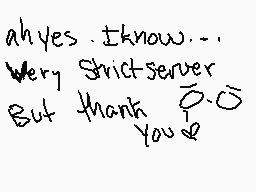 ah yes. I know...
Very Strict server
But thank
You